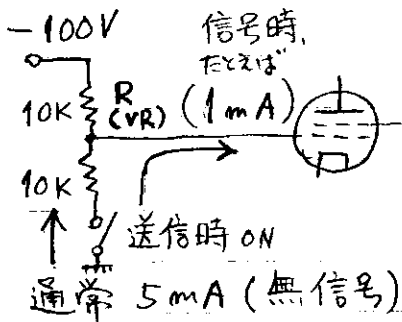 -100V
信号時、
たとえば
10K
R
(VR)
(1mA)
10K
送信時 ON
通常 5mA (無信号)